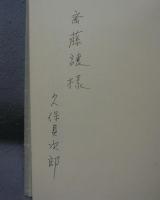 斎藤譲様
久保貞次郎